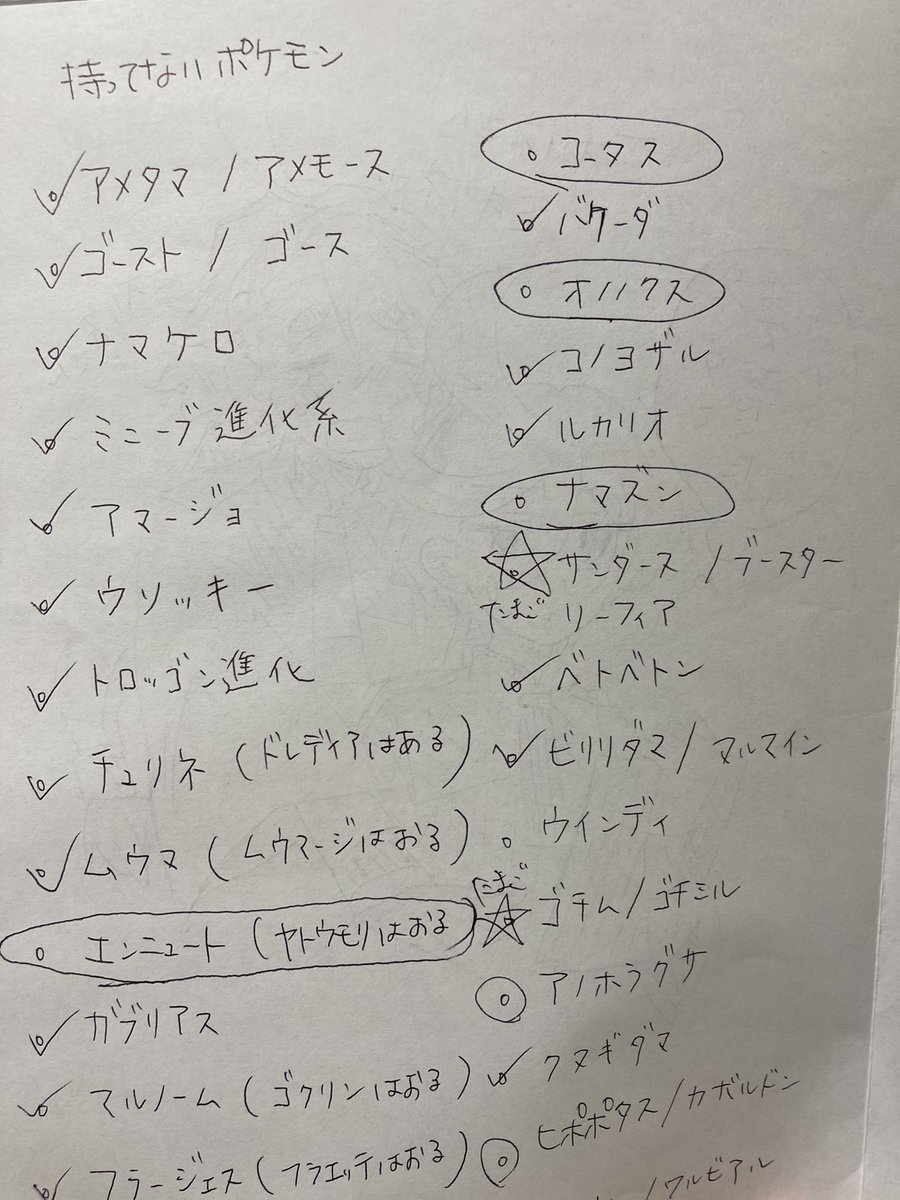 持ってないポケモン
アメタマ / アメモース
ゴースト / ゴース
ナマケロ
ミニーブ進化系
アマージョ
ウソッキー
トロッゴン進化
チュリネ (ドレディアはある)
ムウマ (ムウマージはおる)
エンニュート (ヤトウモリはおる
ガブリアス
マルノーム (ゴクリンはおる)
フラージェス (フラエッテはおる)
コータス
バクーダ
オノノクス
コノヨザル
ルカリオ
ナマズン
サンダース / ブースター
たまご リーフィア
ベトベトン
ビリリダマ / マルマイン
ウインディ
たまご
ゴチム / ゴチミル
アノホラグサ
クヌギダマ
ヒポポタス / カバルドン
/ ワルビアル